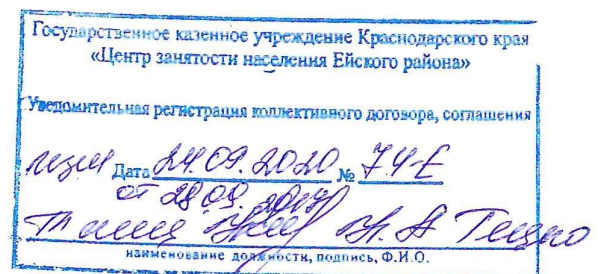 Государственное казенное учреждение Краснодарского края
«Центр занятости населения Ейского района»
Уведомительная регистрация коллективного договора, соглашения
Дата 24.09.2020 № 74-Е
от 28.09.2017
наименование должности, подпись, Ф.И.О.